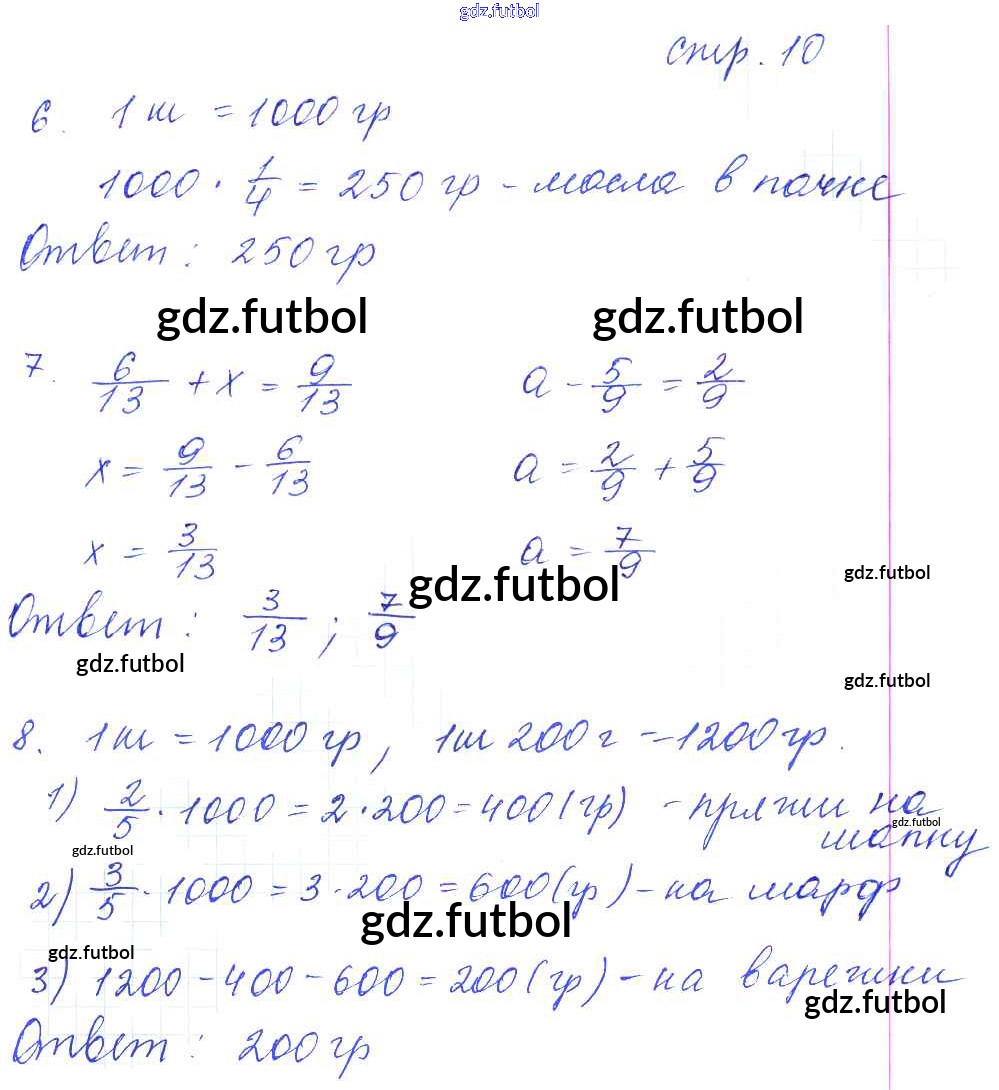 gdz.futbol
стр. 10
6. 1 ш = 1000 гр
1000 · 1/4 = 250 гр - масла в пачке
Ответ: 250 гр
gdz.futbol gdz.futbol
7. 6/13 + x = 9/13 a - 5/9 = 2/9
x = 9/13 - 6/13 a = 2/9 + 5/9
x = 3/13 a = 7/9
gdz.futbol gdz.futbol
Ответ: 3/13 ; 7/9
gdz.futbol gdz.futbol
8. 1ш = 1000 гр, 1ш 200 г - 1200 гр.
1) 2/5 · 1000 = 2 · 200 = 400 (гр) - пряжи на
gdz.futbol
шапку
gdz.futbol
2) 3/5 · 1000 = 3 · 200 = 600 (гр) - на шарф
gdz.futbol
gdz.futbol
3) 1200 - 400 - 600 = 200 (гр) - на варешки
gdz.futbol
Ответ: 200 гр